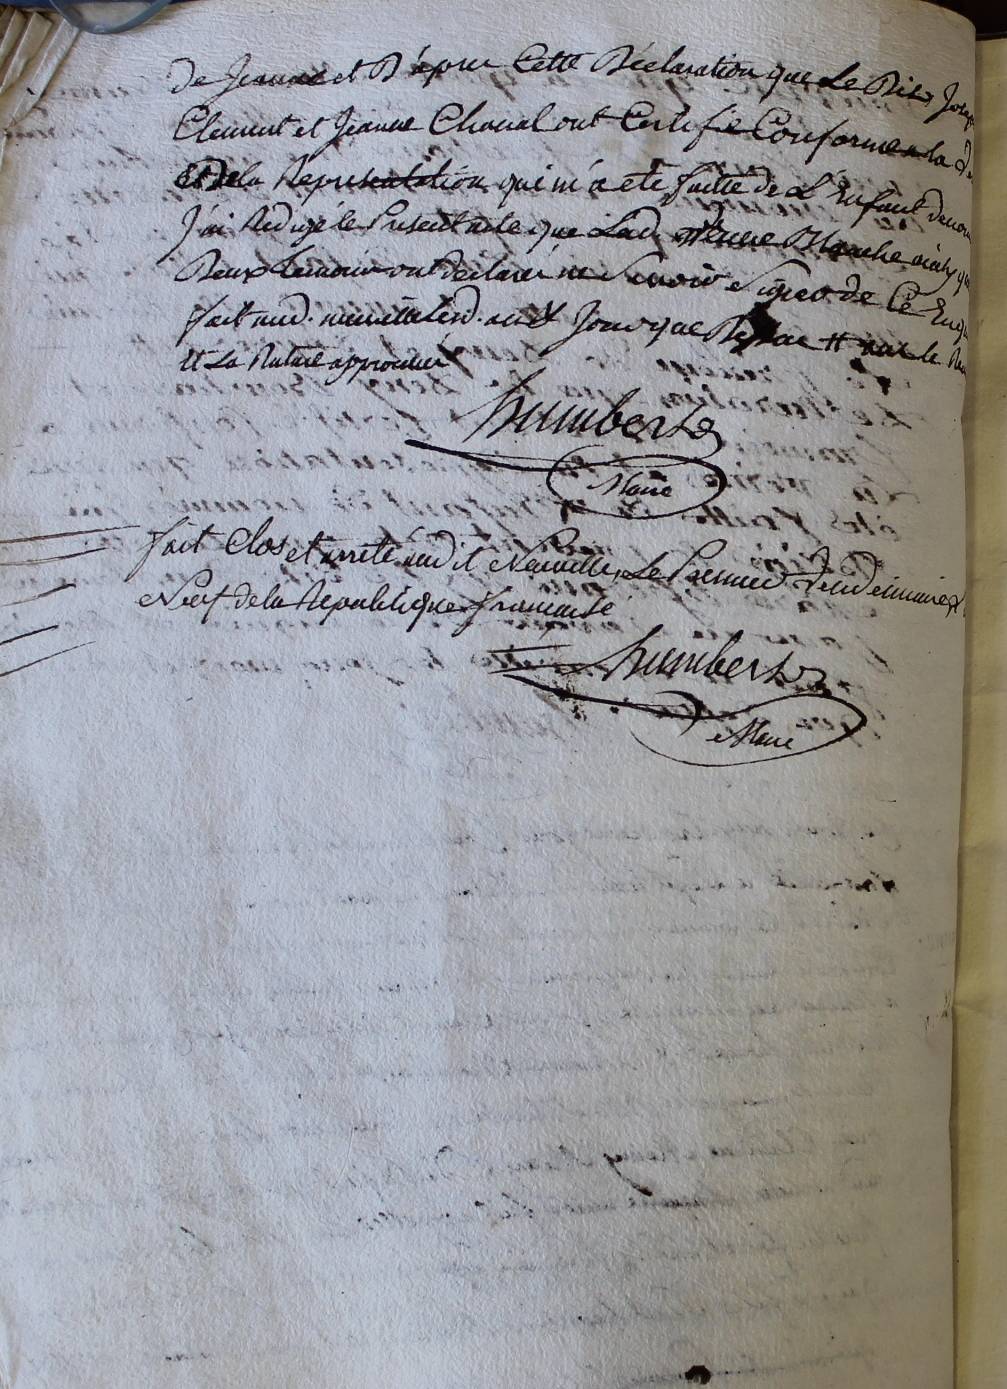 de Jeanne et D'après Cette Déclaration que Le Dits Joseph
Clement et Jeanne Chaval ont Certifié Conforme a la
et de la Representation qui m'a eté faitte de L'Enfant denom
J'ai Redigé le Present acte que Lad. Blanche
Deux temoins ont déclaré ne Savoir Signer de Ce Enqui
fait aud. neuville Lesd. an et Jour que Dessus
et La Rature approuvée
humbert
Maire
fait Clos et arreté audit Neuville, Le Premier Vendemiaire
Neuf de la Republique francaise
humbert
Maire